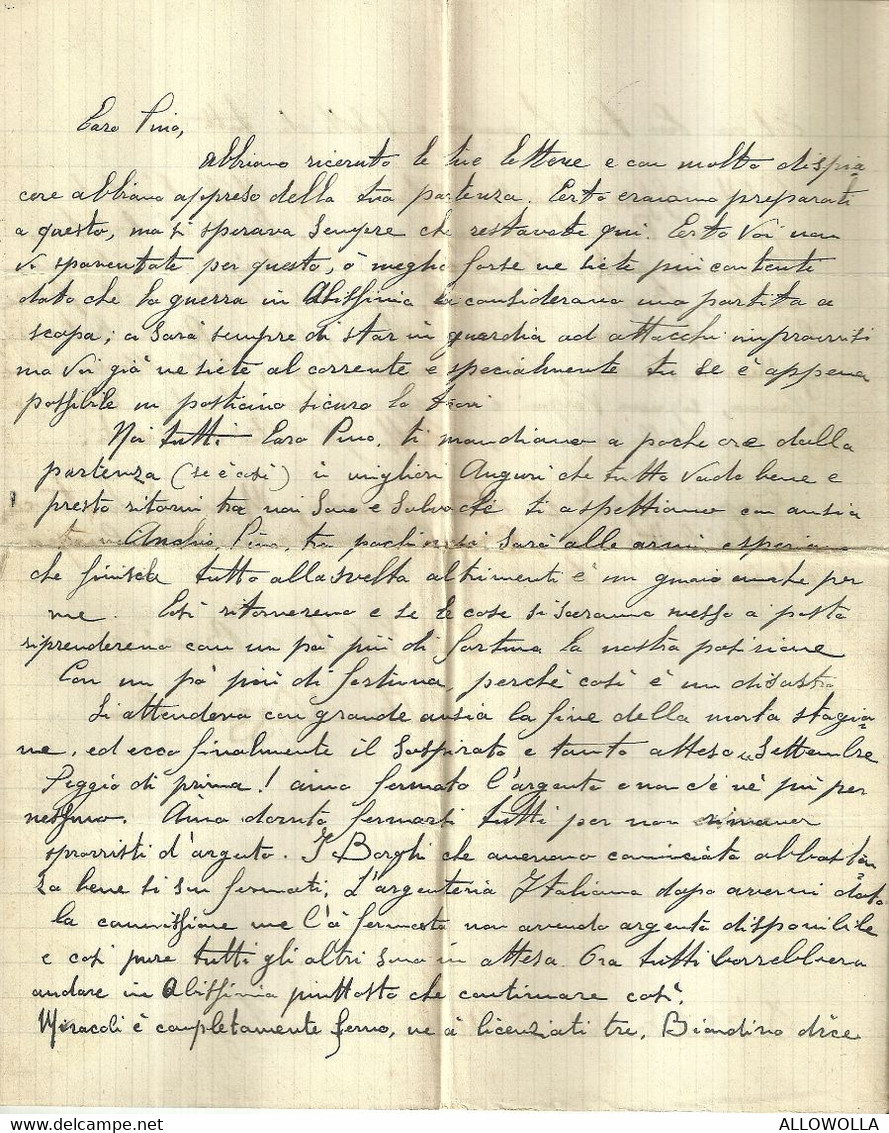 Caro Pino,
Abbiamo ricevuto le tue lettere e con molto dispia
cere abbiamo appreso della tua partenza. Certo eravamo preparati
a questo, ma si sperava sempre che restavate qui. Certo Voi non
vi spaventate per questo, o meglio forse ne siete più contenti
dato che la guerra in Abissinia la considerano una partita a
scopa; ci sarà sempre di star in guardia ad attacchi improvvisi
ma Voi già ne siete al corrente e specialmente tu se è appena
possibile un posticino sicuro lo trovi
Noi tutti Caro Pino, ti mandiamo a poche ore dalla
partenza (se è così) i migliori Auguri che tutto vada bene e
presto ritorni tra noi Sano e Salvo che ti aspettiamo con ansia
Anchio, Pino, tra pochi mesi sarò alle armi e speriamo
che finisca tutto alla svelta altrimenti è un guaio anche per
me. Così ritorneremo e se le cose si saranno messe a posto
riprenderemo con un pò più di fortuna la nostra posizione
Con un pò più di fortuna, perchè così è un disastro
Si attendeva con grande ansia la fine della morta stagio
ne, ed ecco finalmente il sospirato e tanto atteso "Settembre
Peggio di prima! ànno fermato l'argento e non c'è nè più per
nessuno. Ànno dovuto fermarsi tutti per non rimaner
sprovvisti d'argento. I Borghi che avevano cominciato abbastan
za bene si son fermati, L'argenteria Italiana dopo avermi dato
la commissione me l'à fermata non avendo argento disponibile
e così pure tutti gli altri sono in attesa. Ora tutti vorrebbero
andare in Abissinia piuttosto che continuare così.
Miracoli è completamente fermo, ne à licenziati tre, Biandino dice
ALLOWOLLA